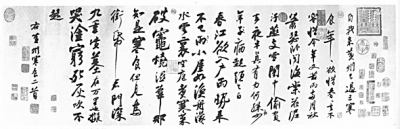 自我来黄州已過三寒
食年〻欲惜春春去不
容惜今年又苦雨兩月秋
蕭瑟卧聞海棠花泥
汙燕支雪闇中偷負
去夜半真有力何殊少
年子病起頭已白
春江欲入戶雨勢来
不已雨小屋如漁舟濛〻
水雲裏空庖煮寒菜
破竈燒濕葦那
知是寒食但見烏
銜帋君門深
九重墳墓在万里也擬
哭塗窮死灰吹不
起
右黄州寒食二首